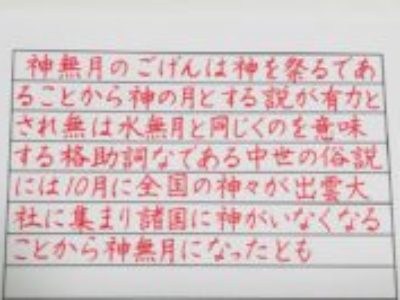 神無月のごげんは神を祭るであ
ることから神の月とする説が有力と
され無は水無月と同じくのを意味
する格助詞なである中世の俗説
には10月に全国の神々が出雲大
社に集まり諸国に神がいなくなる
ことから神無月になったとも